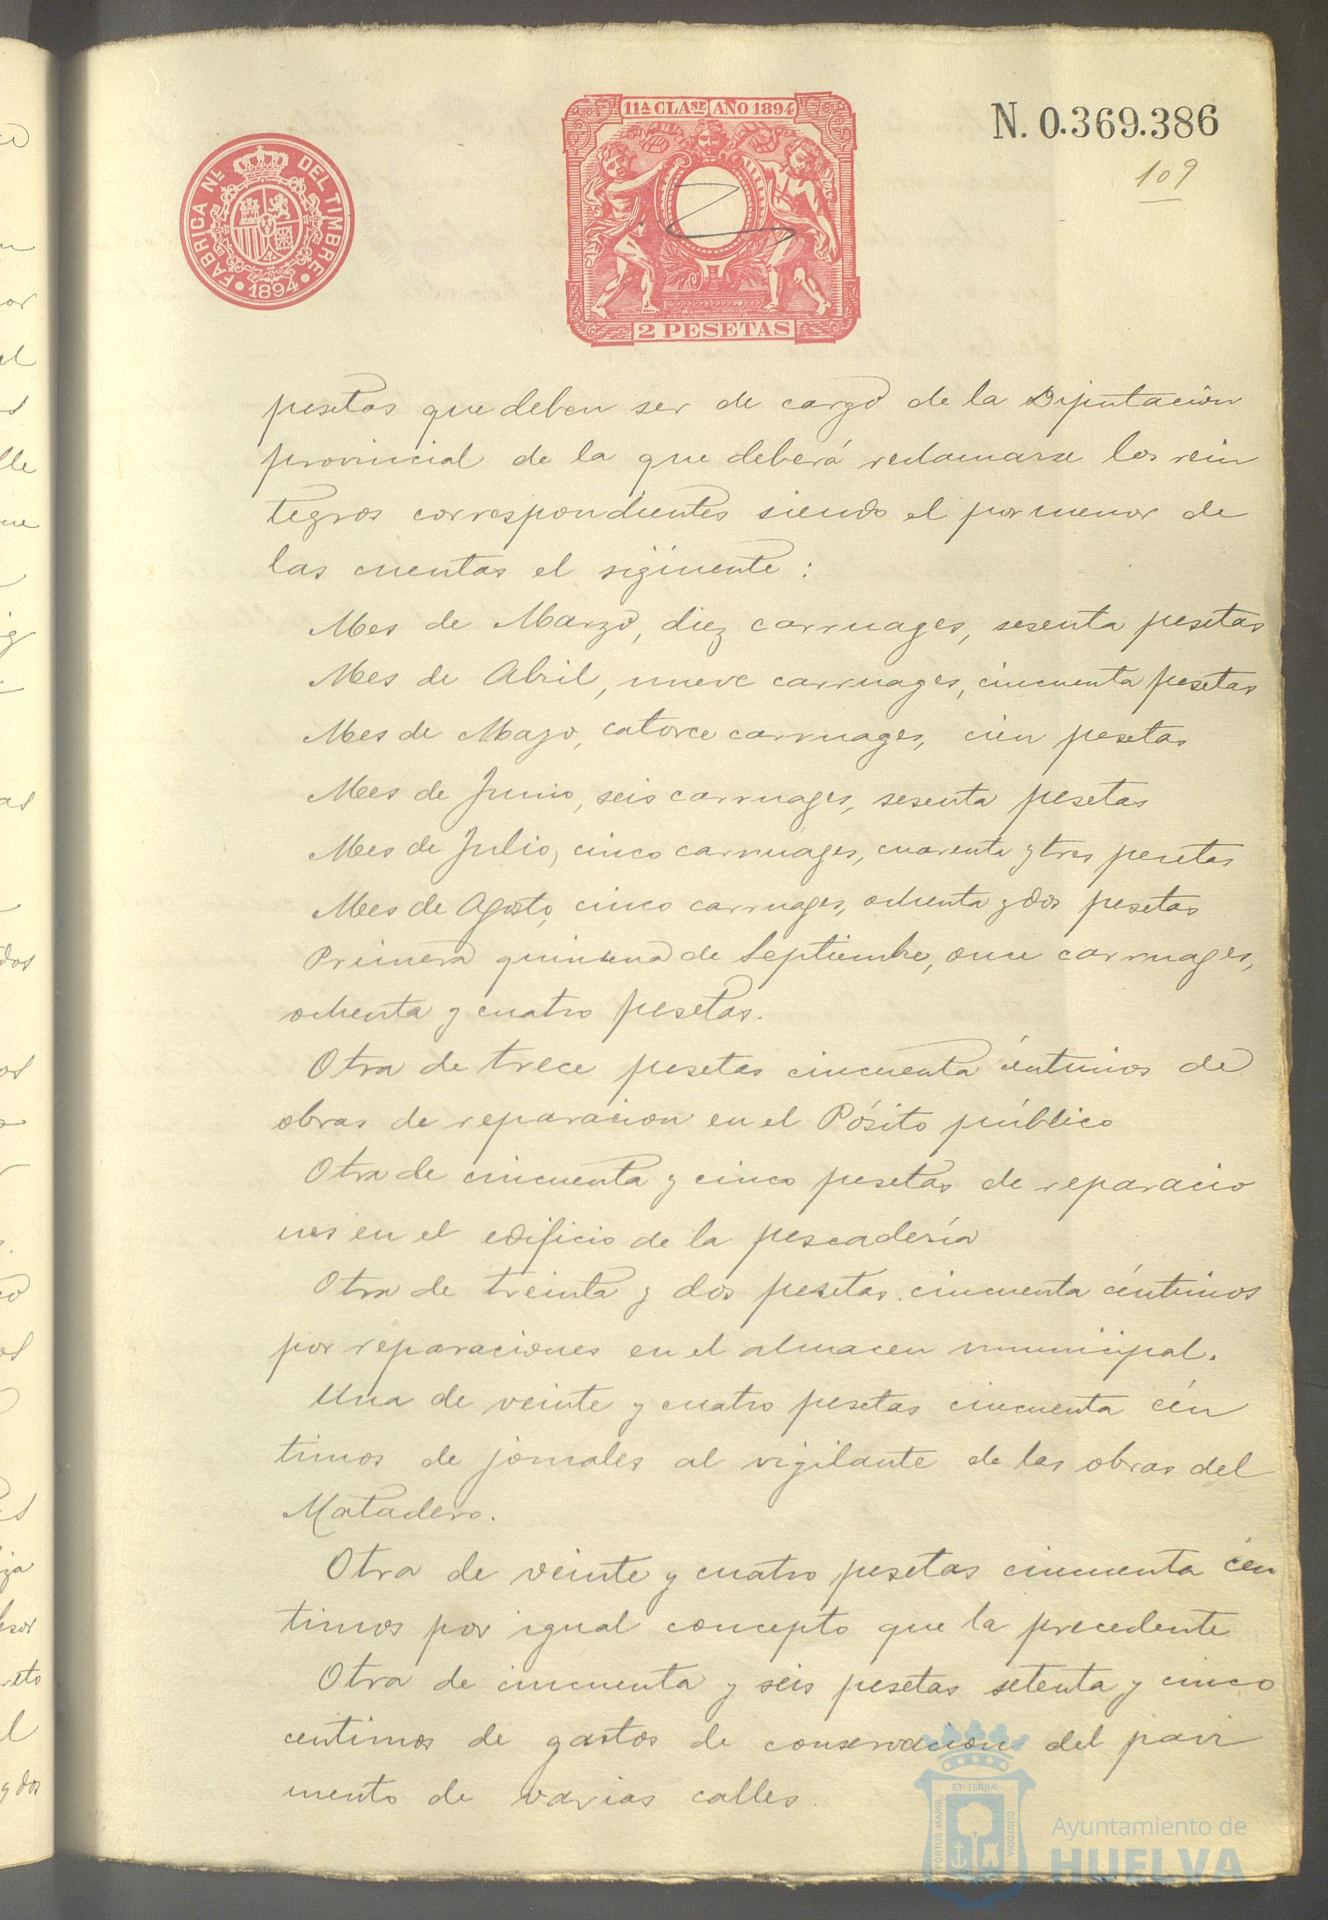 11ª CLASE AÑO 1894
N. 0.369.386
109
FABRICA Nˡ DEL TIMBRE
1894
2 PESETAS
pesetas que deben ser de cargo de la Diputación
provincial de la que deberá reclamarse los rein
tegros correspondientes siendo el pormenor de
las cuentas el sigüiente:
Mes de Marzo, diez carruages, sesenta pesetas
Mes de Abril, nueve carruages, cincuenta pesetas
Mes de Mayo, catorce carruages, cien pesetas
Mes de Junio, seis carruages, sesenta pesetas
Mes de Julio, cinco carruages, cuarenta y tres pesetas
Mes de Agosto, cinco carruages, ochenta y dos pesetas
Primera quincena de Septiembre, once carruages,
ochenta y cuatro pesetas.
Otra de trece pesetas cincuenta céntimos de
obras de reparacion en el Pósito público
Otra de cincuenta y cinco pesetas de reparacio
nes en el edificio de la pescadería
Otra de treinta y dos pesetas cincuenta céntimos
por reparaciones en el almacen municipal.
Una de veinte y cuatro pesetas cincuenta cén
timos de jornales al vigilante de las obras del
Matadero.
Otra de veinte y cuatro pesetas cincuenta cén
timos por igual concepto que la precedente
Otra de cincuenta y seis pesetas setenta y cinco
centimos de gastos de conservacion del pavi
mento de varias calles.
PORTUS MARIS ET TERRÆ CUSTODIA
Ayuntamiento de
HUELVA